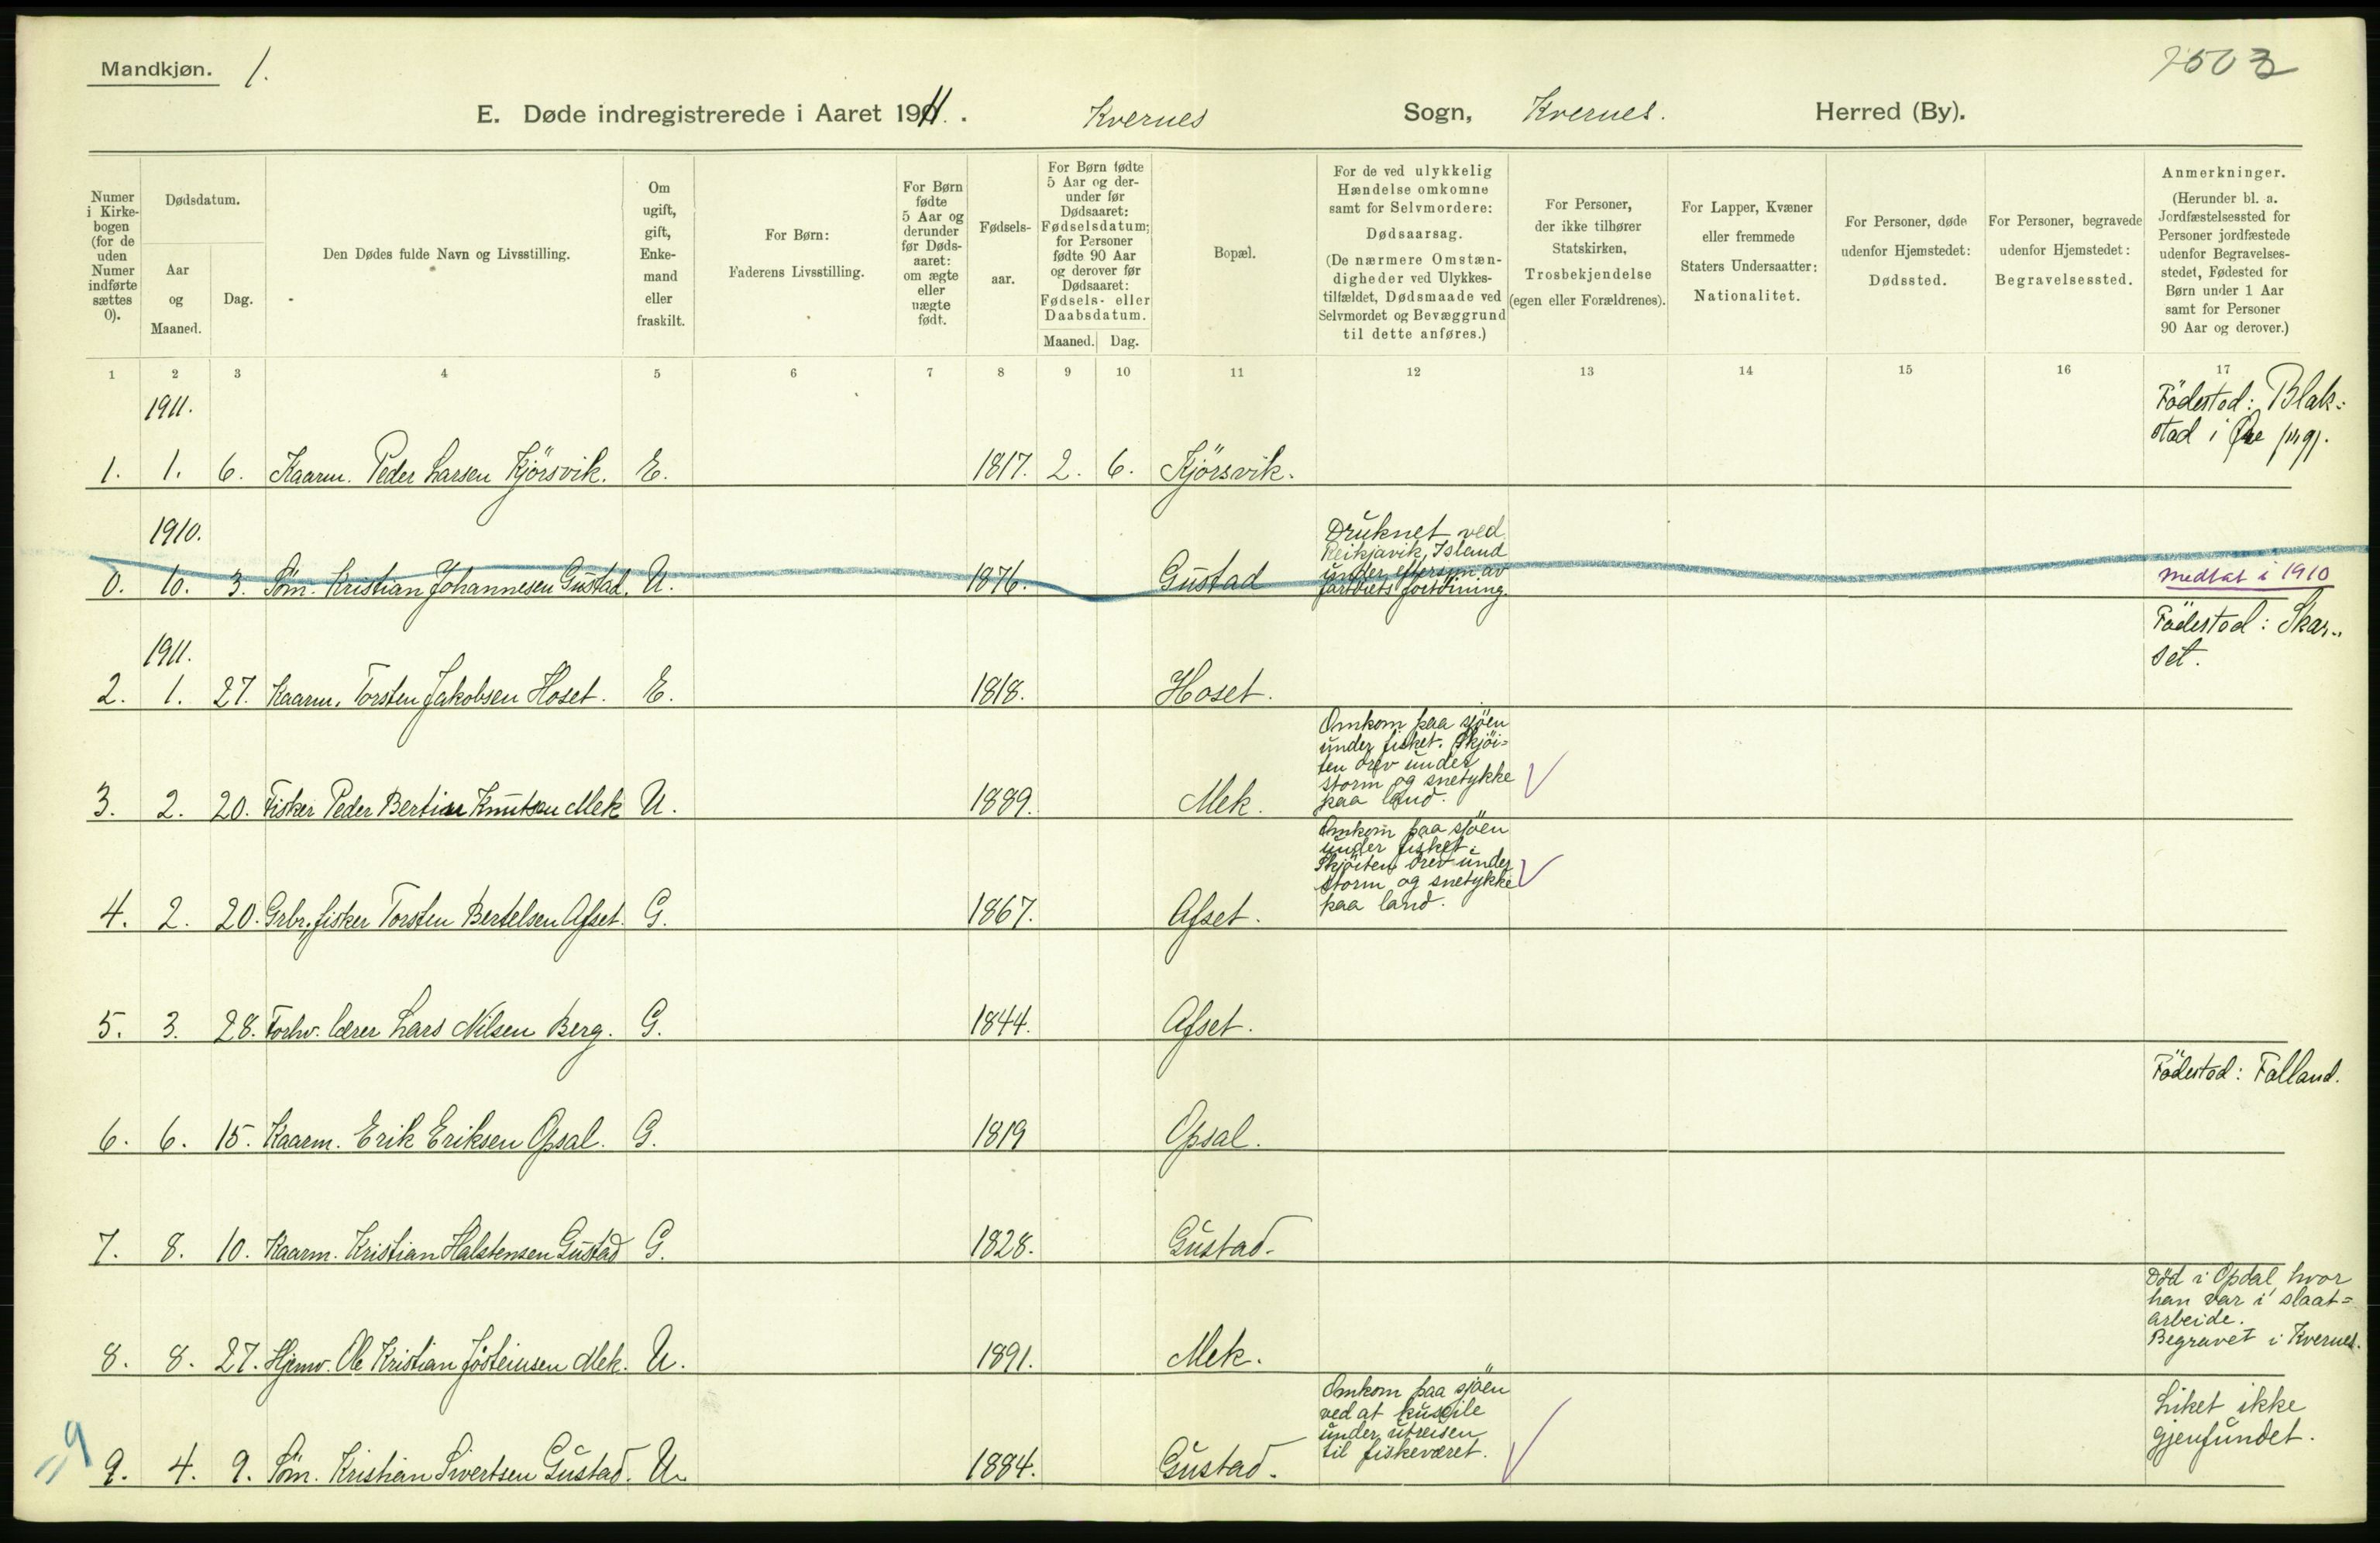 Mandkjøn. 1.
7503
E. Døde indregistrerede i Aaret 1911. Kvernes Sogn, Kvernes. Herred (By).
Numer i Kirkebogen (for de uden Numer indførte sættes 0).
Dødsdatum.
Aar og Maaned.
Dag.
Den Dødes fulde Navn og Livsstilling.
Om ugift, gift, Enkemand eller fraskilt.
For Børn: Faderens Livsstilling.
For Børn fødte 5 Aar og derunder før Dødsaaret: om ægte eller uægte født.
Fødselsaar.
For Børn fødte 5 Aar og derunder før Dødsaaret: Fødselsdatum; for Personer fødte 90 Aar og derover før Dødsaaret: Fødsels- eller Daabsdatum.
Maaned. Dag.
Bopæl.
For de ved ulykkelig Hændelse omkomne samt for Selvmordere: Dødsaarsag. (De nærmere Omstændigheder ved Ulykkestilfældet, Dødsmaade ved Selvmordet og Bevæggrund til dette anføres.)
For Personer, der ikke tilhører Statskirken, Trosbekjendelse (egen eller Forældrenes).
For Lapper, Kvæner eller fremmede Staters Undersaatter: Nationalitet.
For Personer, døde udenfor Hjemstedet: Dødssted.
For Personer, begravede udenfor Hjemstedet: Begravelsessted.
Anmerkninger. (Herunder bl. a. Jordfæstelsessted for Personer jordfæstede udenfor Begravelsesstedet, Fødested for Børn under 1 Aar samt for Personer 90 Aar og derover.)
1 2 3 4 5 6 7 8 9 10 11 12 13 14 15 16 17
1911.
Födestad: Blakstad i Øre
1. 1. 6. Kaarm. Peder Larsen Kjörsvik. E. 1817. 2. 6. Kjörsvik.
1910.
Druknet ved
Reikjavik, Island
under eftersyn av
fartöiets fortöining.
0. 10. 3. Söm. Kristian Johannesen Gustad. U. 1876. Gustad
medtat i 1910
1911.
Födestad: Skarset.
2. 1. 27. Kaarm. Torsten Jakobsen Hoset. E. 1818. Hoset.
Omkom paa sjöen
under fisket. Skjöiten
drev under
storm og snetykke
paa land.
3. 2. 20. Fisker Peder Bertin Knutsen Mek U. 1889. Mek.
Omkom paa sjöen
under fisket.
Skjöiten drev under
storm og snetykke
paa land.
4. 2. 20. Grbr., fisker Torsten Bertelsen Afset. G. 1867. Afset.
5. 3. 28. Forhv. lærer Lars Nilsen Berg. G. 1844. Afset.
Födestad: Falland.
6. 6. 15. Kaarm. Erik Eriksen Opsal. G. 1819 Opsal.
7. 8. 10. Kaarm. Kristian Halstensen Gustad G. 1828. Gustad.
Död i Opdal, hvor
han var i slaat=
arbeide.
Begravet i Kvernes.
8. 8. 27. Hjemv. Ole Kristian Jösteinsen Mek. U. 1891. Mek.
Omkom paa sjöen
ved at kuseile
under utreisen
til fiskeværet.
Liket ikke
gjenfundet.
=9
9. 4. 9. Söm. Kristian Sivertsen Gustad. U. 1884. Gustad.